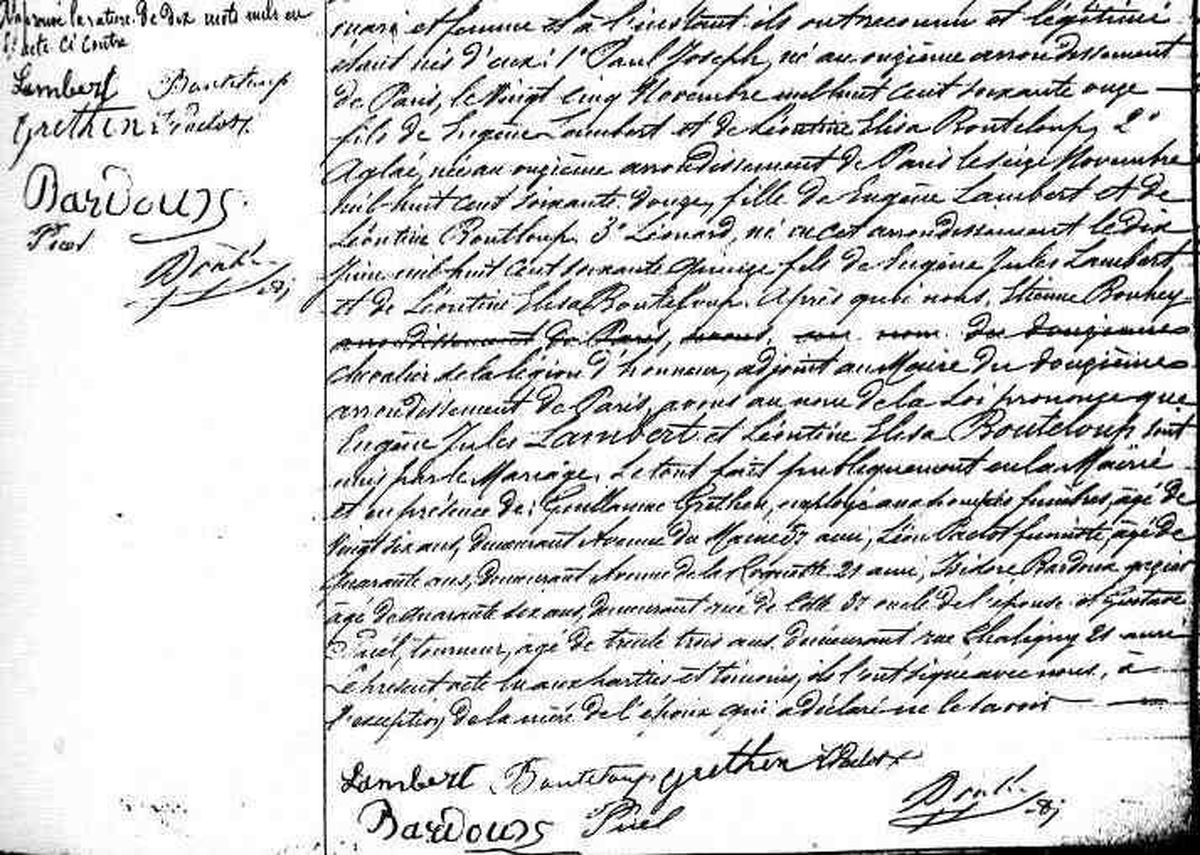 Napprouvé la rature de dix mots nuls en
l'acte ci contre
Lambert Bouteloup
Grethen L Paclot
Bardoux
Puel
mari et femme et à l'instant ils ont reconnu et légitimé
étant nés d'eux: 1° Paul Joseph, né au onzième arrondissement
de Paris, le Vingt cinq Novembre mil huit cent soixante onze
fils de Eugène Lambert et de Léontine Elisa Bouteloup, 2°
Aglaé, née au onzième arrondissement de Paris le seize Novembre
mil-huit cent soixante douze, fille de Eugène Lambert et de
Léontine Bouteloup. 3° Léonard, né en cet arrondissement le dix
Juin mil huit cent soixante quinze fils de Eugène Jules Lambert
et de Léontine Elisa Bouteloup. Après quoi nous, Etienne
arrondissement de Paris, avons, au nom du douzième
chevalier de la légion d'honneur, adjoint au Maire du douzième
arrondissement de Paris, avons au nom de la Loi prononcé que
Eugène Jules Lambert et Léontine Elisa Bouteloup sont
unis par le Mariage. Le tout fait publiquement en la Mairie
et en présence de: Guillaume Grethen, employé aux pompes funèbres, âgé de
Vingt six ans, demeurant Avenue du Maine 37 ami, Léon Paclot fumiste, âgé de
quarante ans, demeurant Avenue de la Roquette 21 ami, Isidore Bardoux
âgé de quarante six ans, demeurant rue de 37 oncle de l'épouse et Gustave
Puel, tourneur, âgé de trente trois ans demeurant rue Chaligny 21 ami
Le présent acte lu aux parties et témoins, ils l'ont signé avec nous, à
l'exception de la mère de l'époux qui a déclaré ne le savoir
Lambert Bouteloup Grethen L Paclot
Bardoux Puel